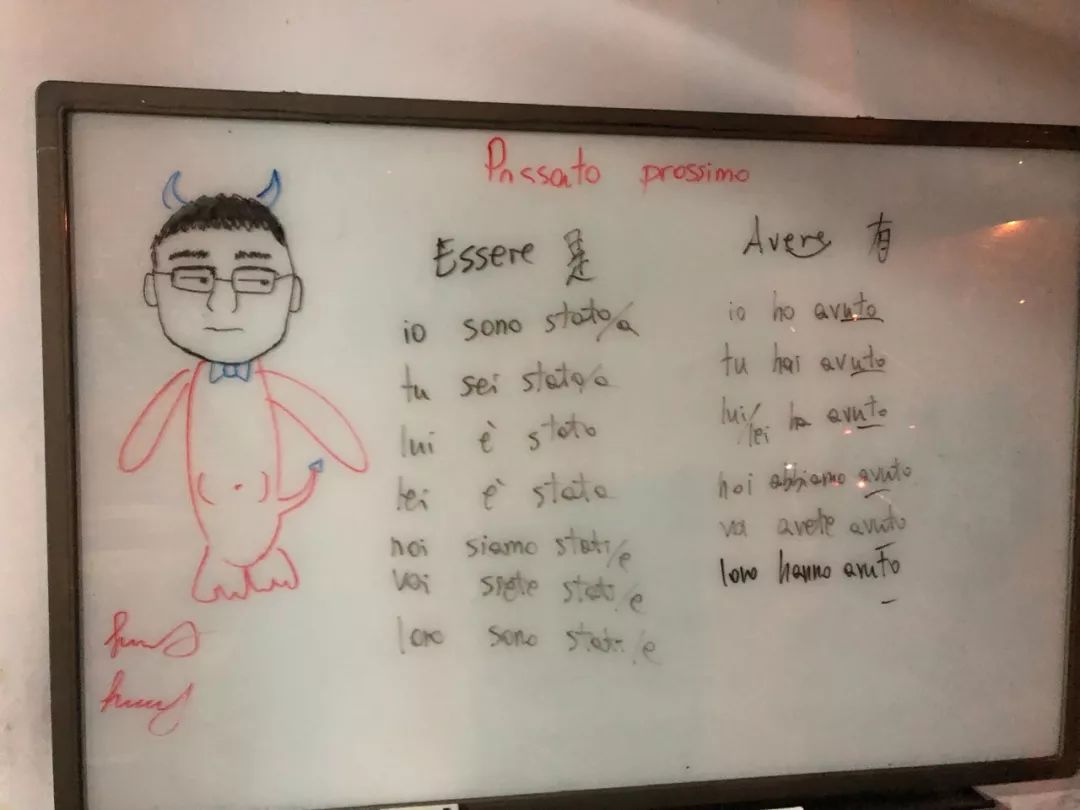 Passato prossimo
Essere 是
io sono stato/a
tu sei stato/a
lui è stato
lei è stata
noi siamo stati/e
voi siete stati/e
loro sono stati/e
Avere 有
io ho avuto
tu hai avuto
lui/lei ha avuto
noi abbiamo avuto
va avete avuto
loro hanno avuto